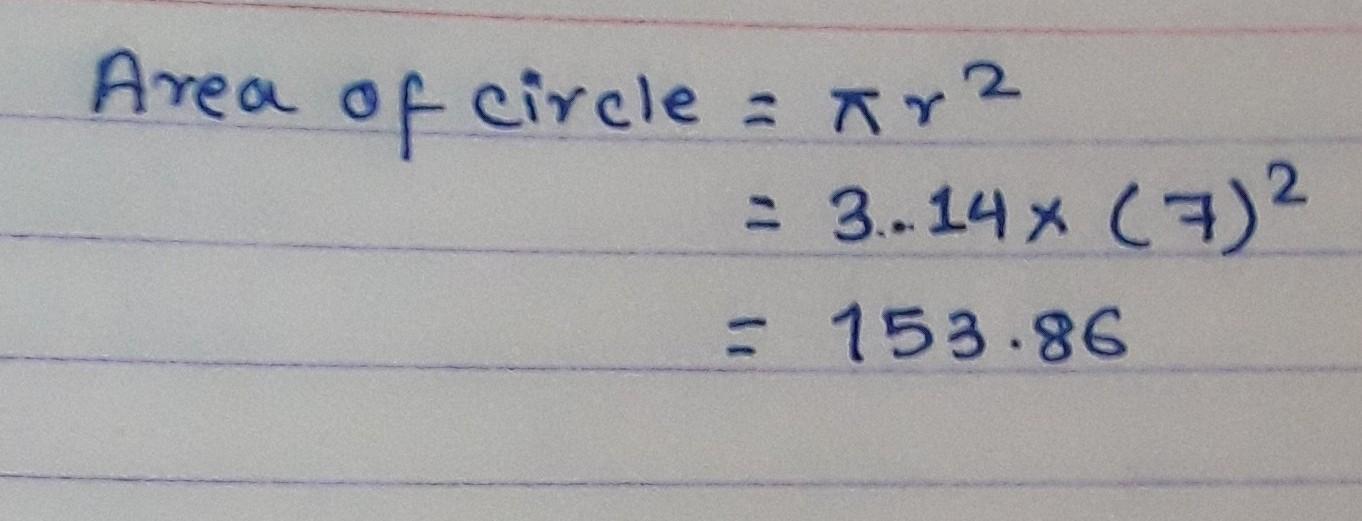 Area of circle = πr²
= 3..14 × (7)²
= 153.86